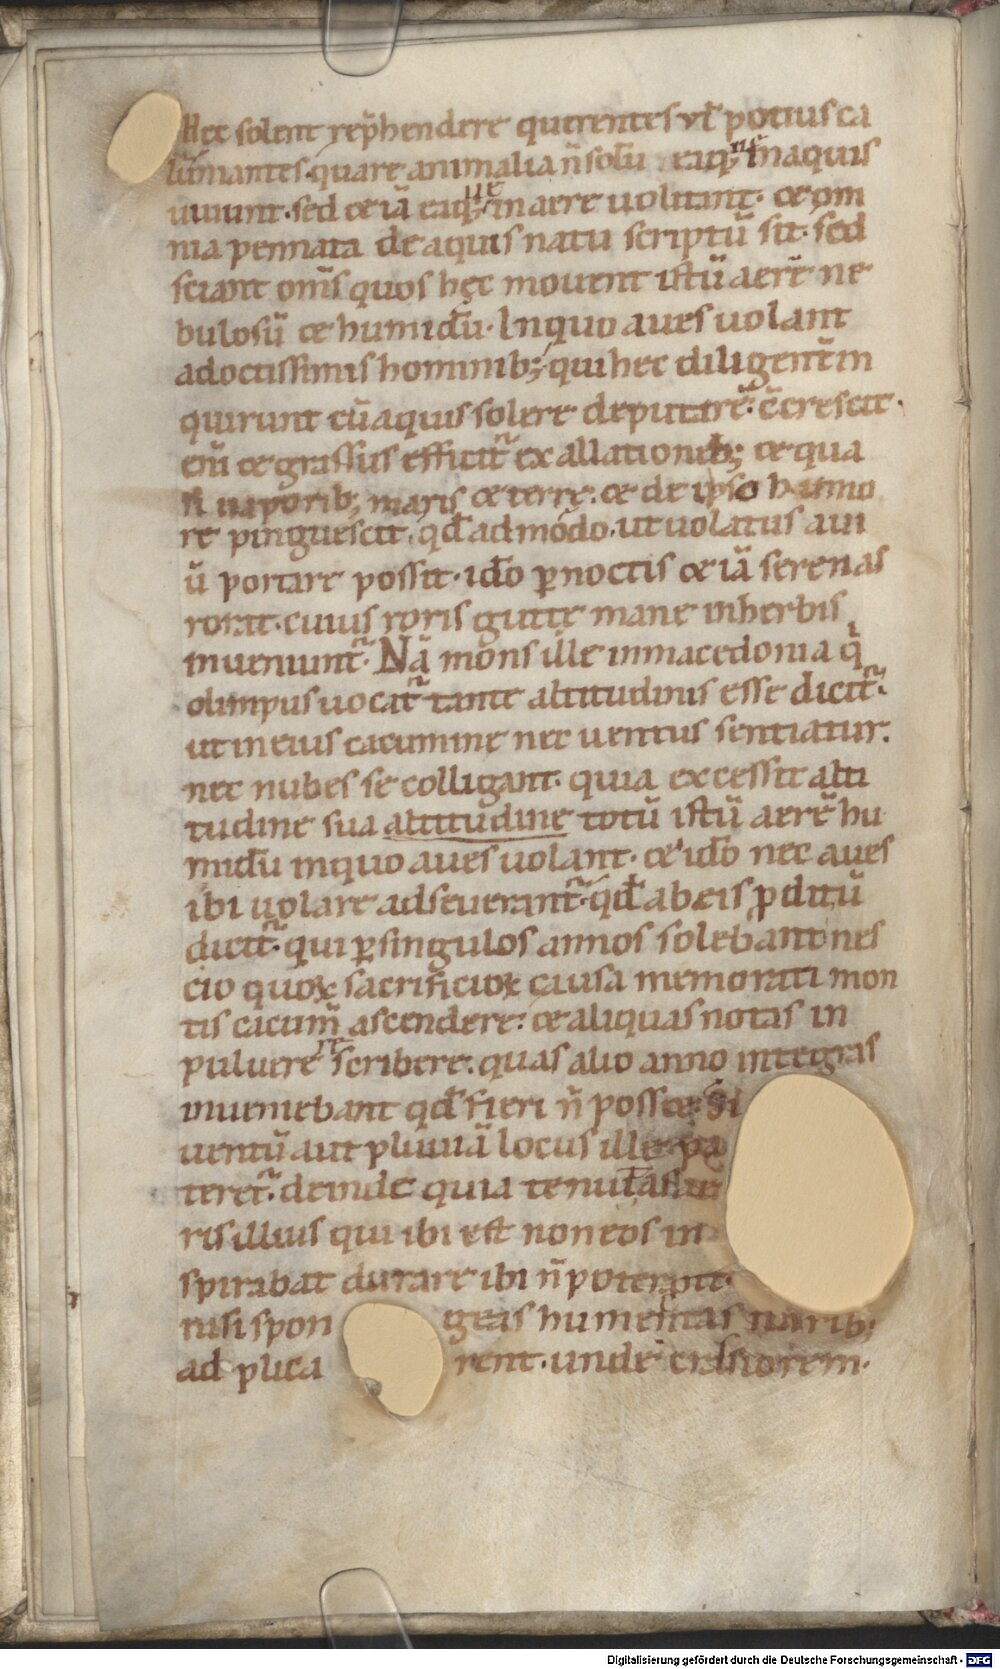 Hec solent rep̄hendere querentes vl̄ potius ca
lūmniantes. quare animalia n̄ solū eaq; in aquis
uiuunt. sed & iā eaq; in aere uolitant. & om
nia pennata de aquis natu scriptū sit. sed
sciant om̄s quos hęc mouent istū aerē ne
bulosū & humidū. In quo aues uolant
adoctissimis hominib; qui hec diligent̄ in
quirunt cū aquis solere deputare. c̄crescit.
eni & grassus efficit̄ ex allationib; & qua
si uaporib; maris & terrę. & de ipso humo
re pinguescit. qd̄ ad modo. ut uolatus aui
ū portare possit. ido p̱noctis & iā serenas
rorat. cuius roris gutte mane in herbis
inueniunt̄. Nā mons ille in macedonia q
olimpus uocat̄ tante altitudinis esse dicit̄.
ut in eius cacumine nec uentus sentiatur.
nec nubes se colligant. quia excessit alti
tudine sua altitudine totū istū aerē hu
midū in quo aues uolant. & ido nec aues
ibi uolare adseuerant̄. qd̄ ab eis p̱ditū
dicit̄. qui p̱ singulos annos solebant nes
cio quoꝝ sacrificioꝝ causa memorati mon
tis cacum̄ ascendere. & aliquas notas in
puluere scribere. quas alio anno integras
inueniebant qd̄ fieri n̄ posse. Si
uentū aut pluuiā locus ille pa
teret̄. deinde quia tenuitas ae
ris illius qui ibi est non eos in
spirabat durare ibi n̄ poterant.
nisi spon geas humentas narib;
ad plica rent. unde crassiorem.
Digitalisierung gefördert durch die Deutsche Forschungsgemeinschaft - DFG